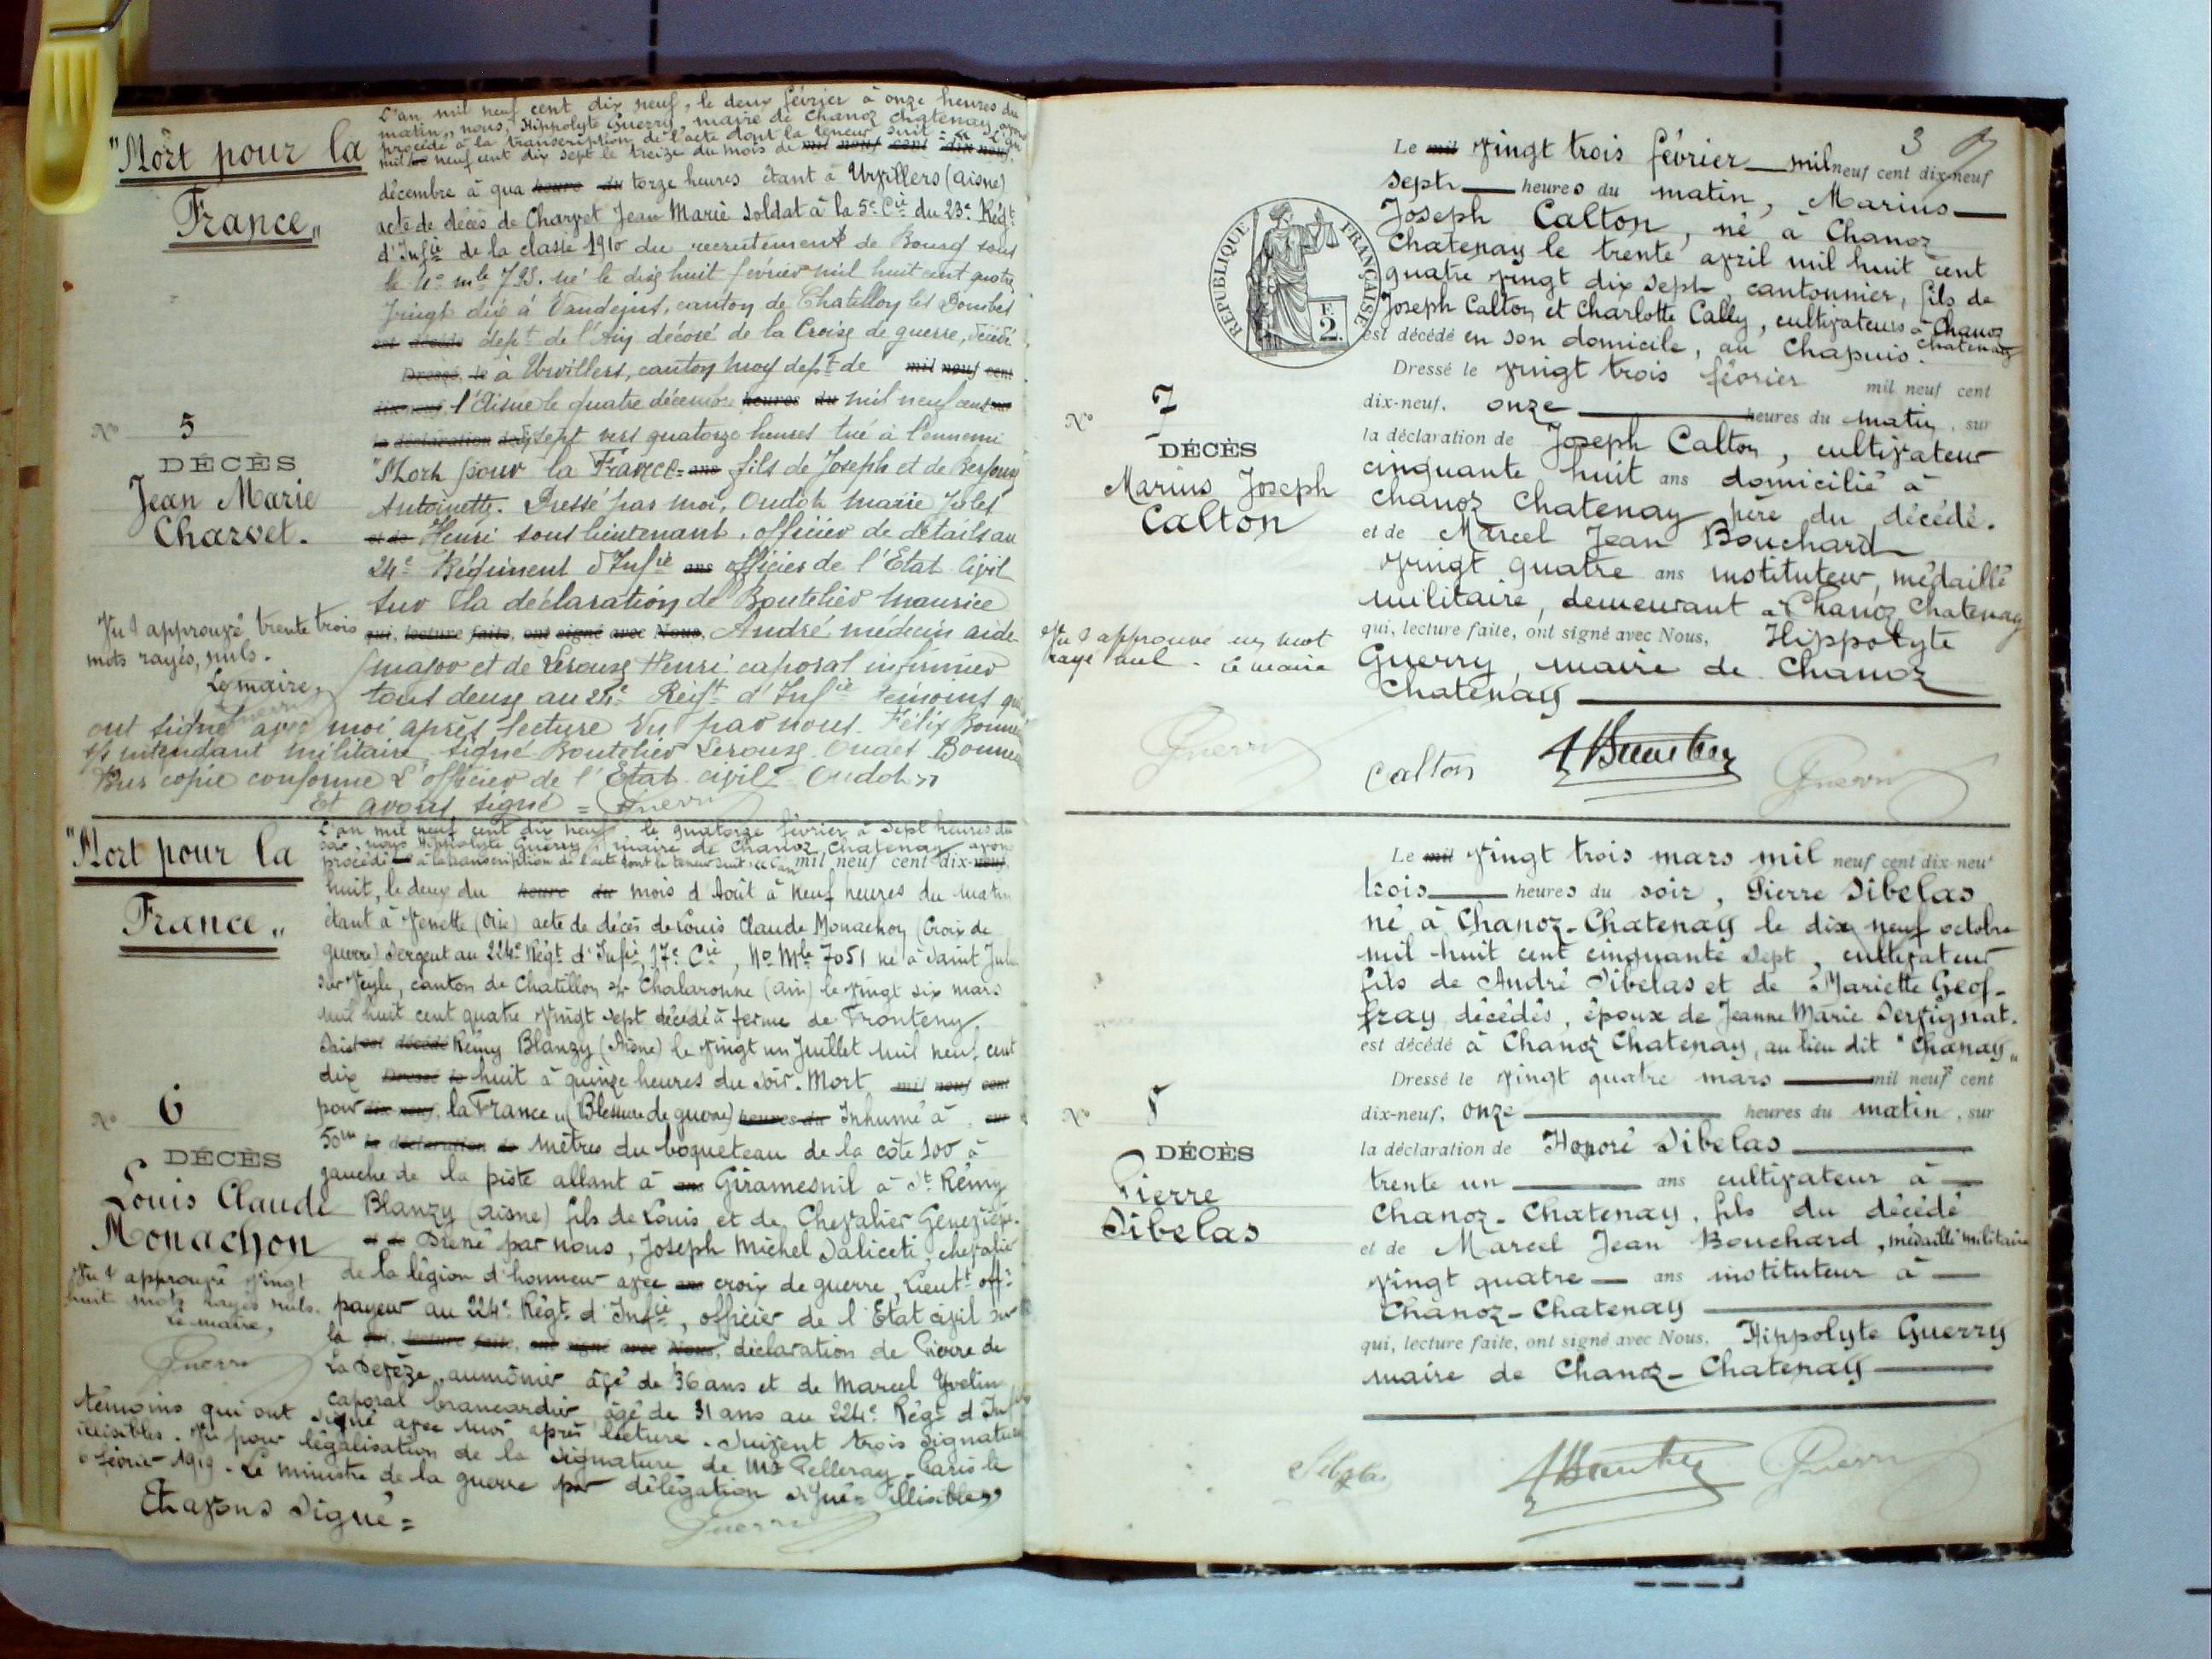 "Mort pour la
France"
L'an mil neuf cent dix neuf, le deux février à onze heures du
matin, nous, Hippolyte Guerry, maire de Chanoz Chatenay, avons
procédé à la transcription de l'acte dont la teneur suit = "L'an
mil neuf cent dix sept le treize du mois de mil neuf cent dix-neuf,
décembre à qua heure du torze heures étant à Urvillers (Aisne)
acte de décès de Charvet Jean Marie soldat à la 5e Cie du 23e Régt
d'Infie de la classe 1910 du recrutement de Bourg sous
le No mle 795. né le dix huit février mil huit cent quatre
vingt dix à Vandeins, canton de Chatillon les Dombes
est décédé dépt de l'Ain décoré de la Croix de guerre, décédé
Dressé, le à Urvillers, canton Moy dept de mil neuf cent
dix-neuf, l'Aisne le quatre décembre heures du mil neuf cent sur
la déclaration de dix sept vers quatorze heures tué à l'ennemi
"Mort pour la France" ans fils de Joseph et de
Antoinette. Dressé par moi, Oudot Marie Jules
et de Henri sous lieutenant, officier de détails au
24e Régiment d'Infie ans officier de l'Etat Civil
sur la déclaration de Boutelier Maurice
qui, lecture faite, ont signé avec Nous, André médecin aide
major et de Leroux Henri caporal infirmier
tous deux au 24e Régt d'Infie témoins qui
ont signé avec moi après lecture Vu par nous Félix
s/s intendant militaire, signé Boutelier Leroux Oudot
Pour copie conforme L'officier de l'Etat civil = Oudot »
Et avons signé = Guerry
No 5
DÉCÈS
Jean Marie
Charvet.
Vu & approuvé, trente trois
mots rayés, nuls.
Le maire,
Guerry
"Mort pour la
France"
L'an mil neuf cent dix neuf, le quatorze février à sept heures du
soir, nous Hippolyte Guerry, maire de Chanoz Chatenay avons
procédé à la transcription de l'acte dont la teneur suit: "L'an mil neuf cent dix-neuf,
huit, le deux du heure du mois d'Août à neuf heures du matin
étant à Venette (Oise) acte de décès de Louis Claude Monachon (Croix de
guerre) Sergent au 224e Régt d'Infie, 17e Cie, No Mle 7051 né à Saint Julien
sur Veyle, canton de Chatillon sur Chalaronne (Ain) le vingt six mars
mil huit cent quatre vingt sept décédé à ferme de Fronteny,
Saint est décédé Rémy Blanzy (Aisne) le vingt un Juillet mil neuf cent
dix Dressé le huit à quinze heures du soir. Mort mil neuf cent
pour dix-neuf, la France" (Blessure de guerre) heures du Inhumé à sur
50m la déclaration de mètres du boqueteau de la côte 100 à
gauche de la piste allant à ans Giramesnil à St Rémy
Blanzy (Aisne) fils de Louis et de Chevalier Geneviève.
et de Dréné par nous, Joseph Michel Saliceti, chevalier
de la légion d'honneur avec ans croix de guerre, Lieutt offr
payeur au 224e Régt d'Infie, officier de l'Etat civil sur
la qui, lecture faite, ont signé avec Nous, déclaration de Pierre de
La Devèze, aumônier âgé de 36 ans et de Marcel Yvelin
caporal brancardier âgé de 31 ans au 224e Régt d'Infie
témoins qui ont signé avec moi après lecture. Suivent trois signatures
illisibles. Vu pour légalisation de la signature de Mr Pelleray. Paris le
6 février 1919. Le ministre de la guerre par délégation signé = illisible »
Et avons signé =
Guerry
No 6
DÉCÈS
Louis Claude
Monachon
Vu & approuvé vingt
huit mots rayés nuls.
Le maire,
Guerry
3
RÉPUBLIQUE FRANÇAISE
F.
2.
Le mil vingt trois février mil neuf cent dix-neuf
sept heures du matin, Marius
Joseph Calton, né à Chanoz
Chatenay le trente avril mil huit cent
quatre vingt dix sept, cantonnier, fils de
Joseph Calton et Charlotte Cally, cultivateurs à Chanoz
Chatenay
est décédé en son domicile, au Chapuis.
Dressé le vingt trois février mil neuf cent
dix-neuf, onze heures du matin, sur
la déclaration de Joseph Calton, cultivateur
cinquante huit ans domicilié à
Chanoz Chatenay père du décédé.
et de Marcel Jean Bouchard
vingt quatre ans instituteur, médaillé
militaire, demeurant à Chanoz Chatenay
qui, lecture faite, ont signé avec Nous, Hippolyte
Guerry maire de Chanoz
Chatenay
No 7
DÉCÈS
Marius Joseph
Calton
Vu & approuvé un mot
rayé nul. Le maire
Guerry
Calton
Guerry
Le mil vingt trois mars mil neuf cent dix-neuf
trois heures du soir, Pierre Sibelas
né à Chanoz-Chatenay le dix neuf octobre
mil huit cent cinquante sept, cultivateur
fils de André Sibelas et de Mariette Geof-
fray, décédés, époux de Jeanne Marie Servignat.
est décédé à Chanoz Chatenay, au lieu dit "Chanay"
Dressé le vingt quatre mars mil neuf cent
dix-neuf, onze heures du matin, sur
la déclaration de Honoré Sibelas
trente un ans cultivateur à
Chanoz-Chatenay, fils du décédé
et de Marcel Jean Bouchard, médaillé militaire
vingt quatre ans instituteur à
Chanoz-Chatenay
qui, lecture faite, ont signé avec Nous, Hippolyte Guerry
maire de Chanoz-Chatenay
No 8
DÉCÈS
Pierre
Sibelas
Sibelas
Guerry